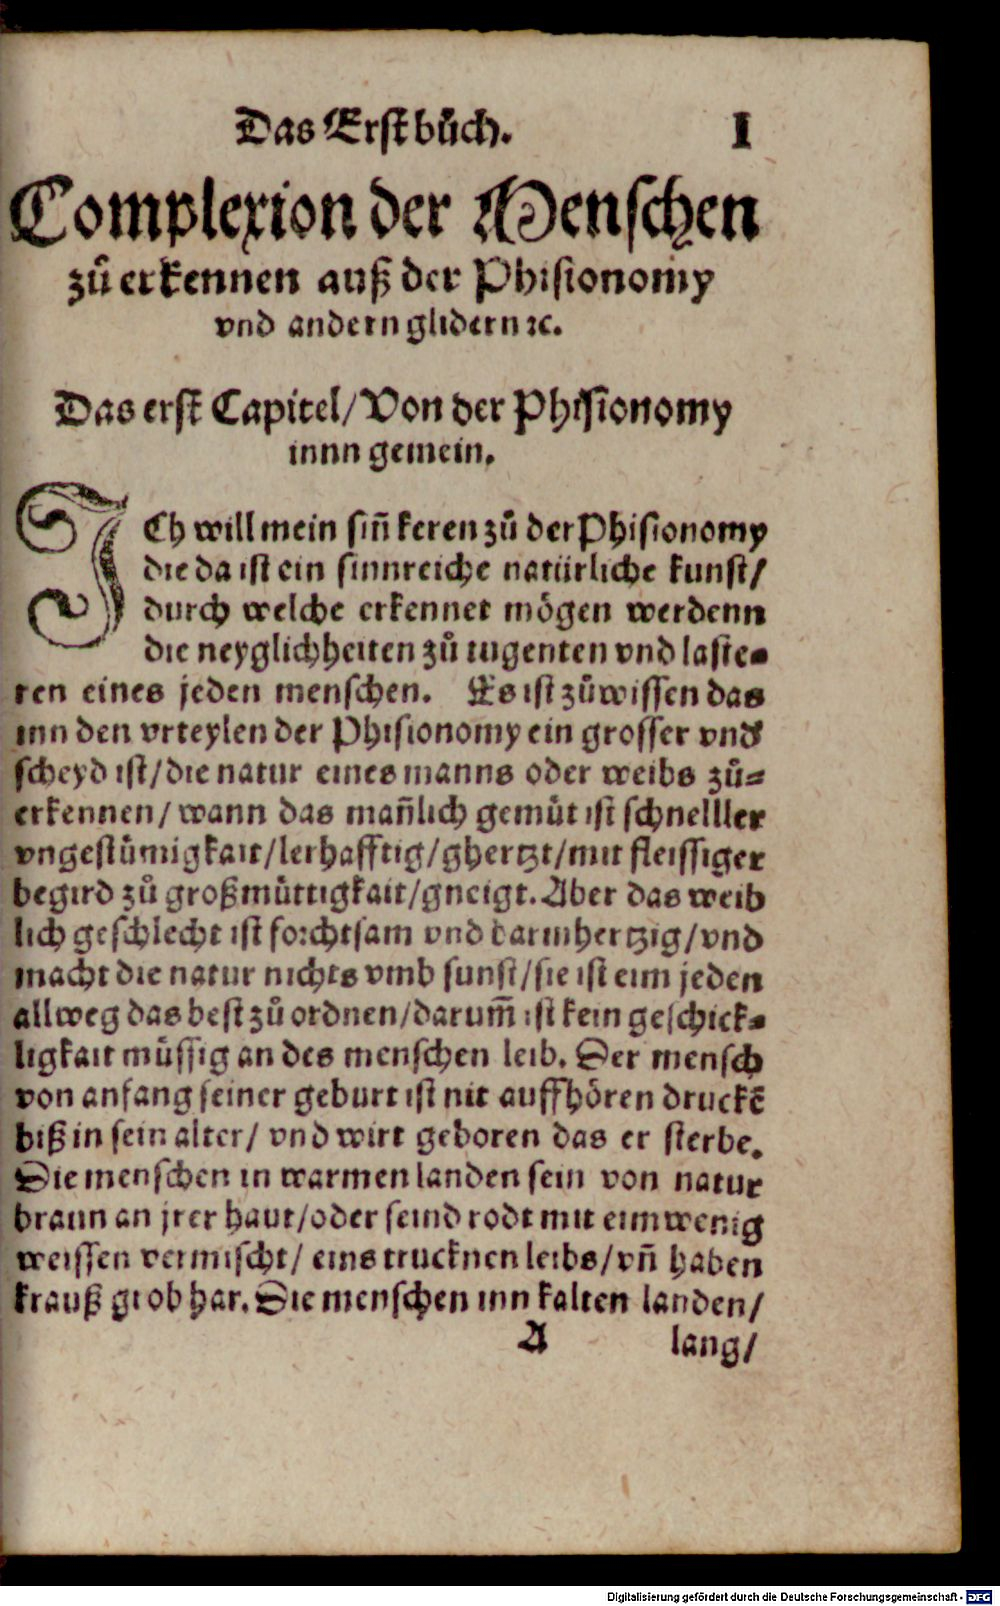 Das Erst bůch. I
Complexion der Menschen
zů erkennen auß der Phisionomy
vnd andern glidern ꝛc.
Das erst Capitel/ Von der Phisionomy
innn gemein.
ICh will mein siñ keren zů der Phisionomy
die da ist ein sinnreiche natürliche kunst/
durch welche erkennet mögen werdenn
die neyglichheiten zů tugenten vnd laste-
ren eines jeden menschen. Es ist zůwissen das
inn den vrteylen der Phisionomy ein grosser vnd'
scheyd ist/ die natur eines manns oder weibs zů-
erkennen/ wann das mañlich gemüt ist schnelller
vngestümigkait/ lerhafftig/ ghertzt/ mit fleissiger
begird zů großmüttigkait/ gneigt. Aber das weib
lich geschlecht ist forchtsam vnd barmhertzig/ vnd
macht die natur nichts vmb sunst/ sie ist eim jeden
allweg das best zů ordnen/ darum̃ ist kein geschick-
ligkait müssig an des menschen leib. Der mensch
von anfang seiner geburt ist nit auffhören druckẽ
biß in sein alter/ vnd wirt geboren das er sterbe.
Die menschen in warmen landen sein von natur
braun an jrer haut/ oder seind rodt mit eim wenig
weissen vermischt/ eins trucknen leibs/ vñ haben
krauß grob har. Die menschen inn kalten landen/
A lang/
Digitalisierung gefördert durch die Deutsche Forschungsgemeinschaft - DFG